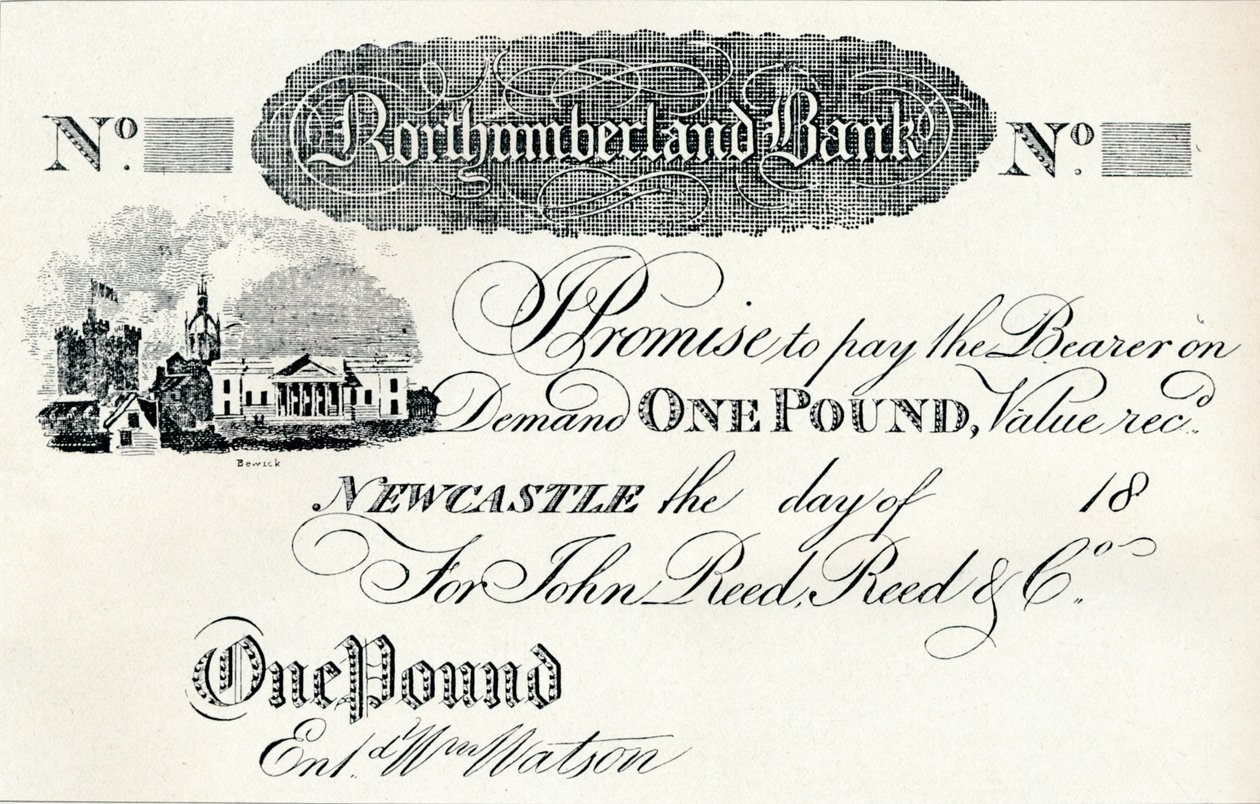 Northumberland Bank
Nº.
Nº.
I Promise to pay the Bearer on
Demand ONE POUND, Value rec.d
Bewick
NEWCASTLE the day of 18
For John Reed, Reed & Cº.
One Pound
Ent.d Wm Watson